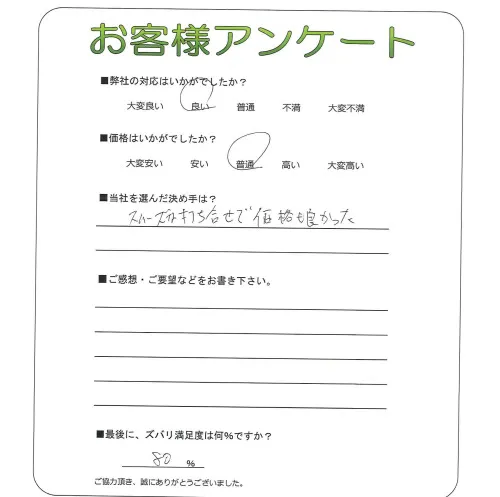 お客様アンケート
■弊社の対応はいかがでしたか?
大変良い 良い 普通 不満 大変不満
■価格はいかがでしたか?
大変安い 安い 普通 高い 大変高い
■当社を選んだ決め手は?
スムーズな打ち合せで価格も良かった
■ご感想・ご要望などをお書き下さい。
■最後に、ズバリ満足度は何%ですか?
80 %
ご協力頂き、誠にありがとうございました。